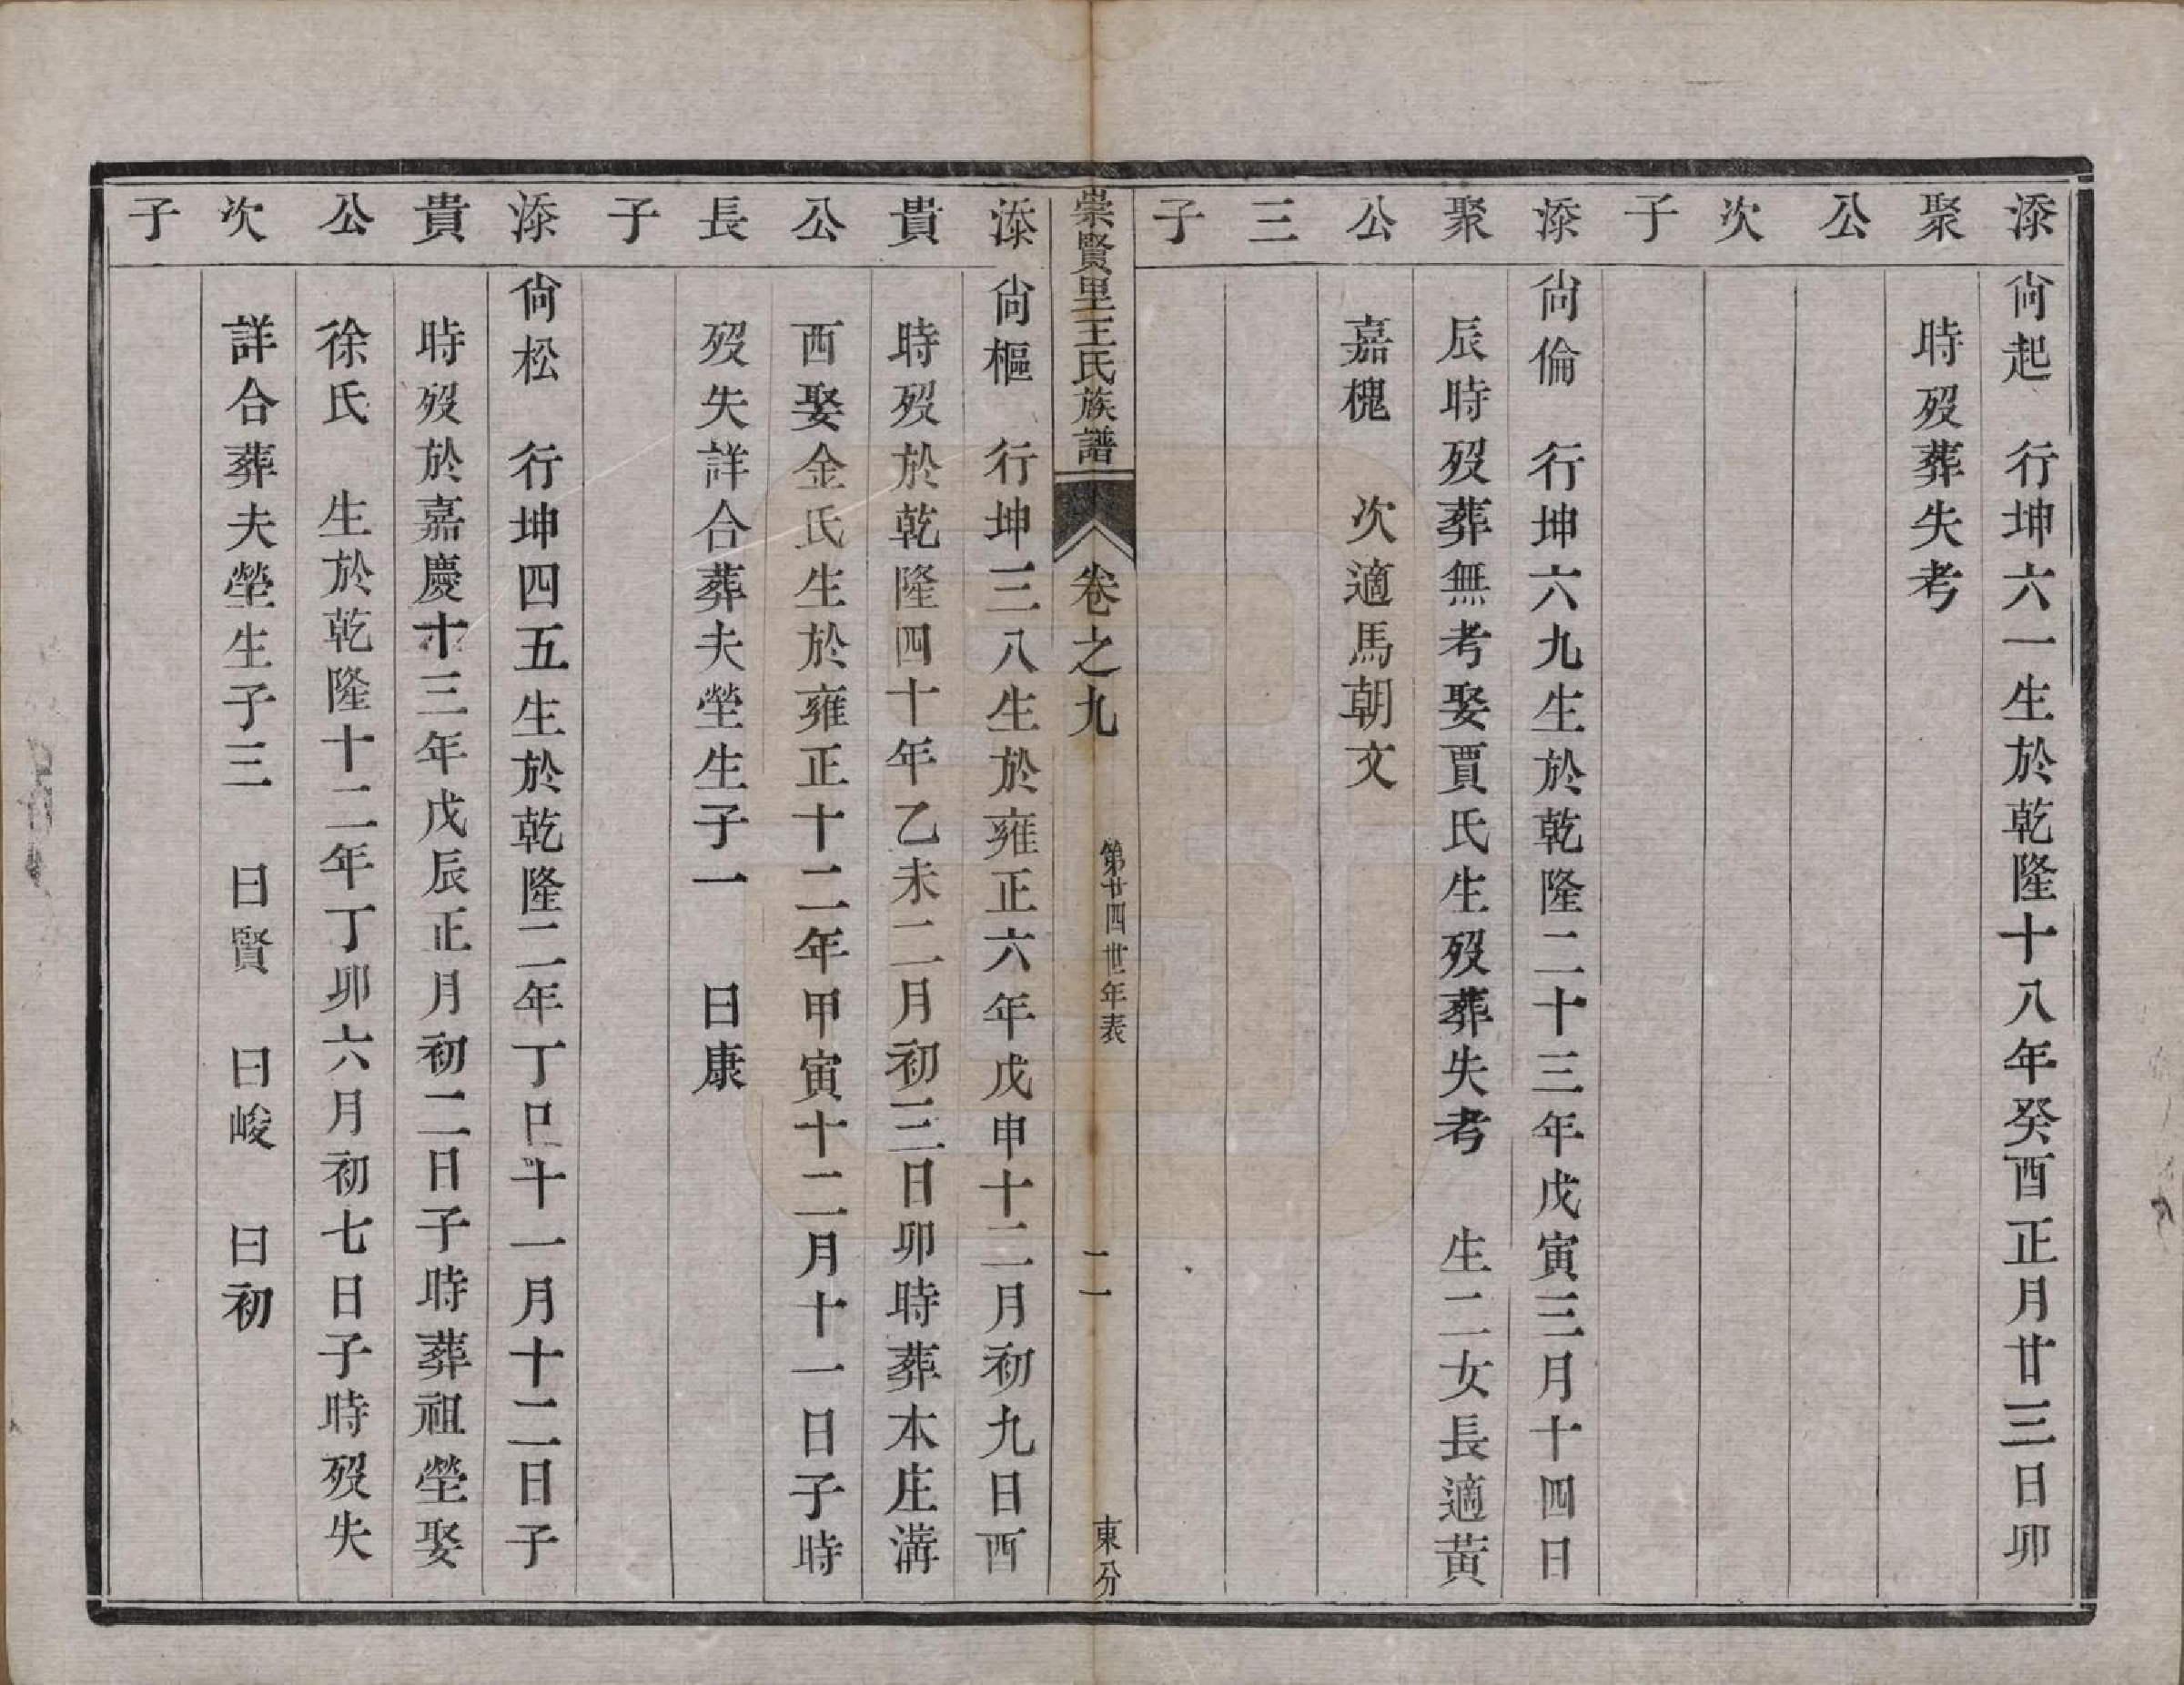 添 尙起 行坤六一生於乾隆十八年癸酉正月廿三日卯
聚 時歿葬失考
公
次
子
添 尙倫 行坤六九生於乾隆二十三年戊寅三月十四日
聚 辰時歿葬無考娶賈氏生歿葬失考 生二女長適黃
公 嘉槐 次適馬朝文
三
子
崇賢里王氏族譜 卷之九 第廿四世年表 二一 東分
添 尙樞 行坤三八生於雍正六年戊申十二月初九日酉
貴 時歿於乾隆四十年乙未二月初三日卯時葬本庄溝
公 西娶金氏生於雍正十二年甲寅十二月十一日子時
長 歿失詳合葬夫塋生子一 曰康
子
添 尙松 行坤四五生於乾隆二年丁巳十一月十二日子
貴 時歿於嘉慶十三年戊辰正月初二日子時葬祖塋娶
公 徐氏 生於乾隆十二年丁卯六月初七日子時歿失
次 詳合葬夫塋生子三 曰賢 曰峻 曰初
子